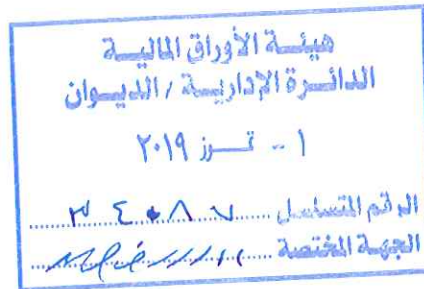 هيئة الأوراق المالية
الدائرة الإدارية / الديوان
١ - تموز ٢٠١٩
الرقم المتسلسل ٣٤٠٨٧
الجهة المختصة